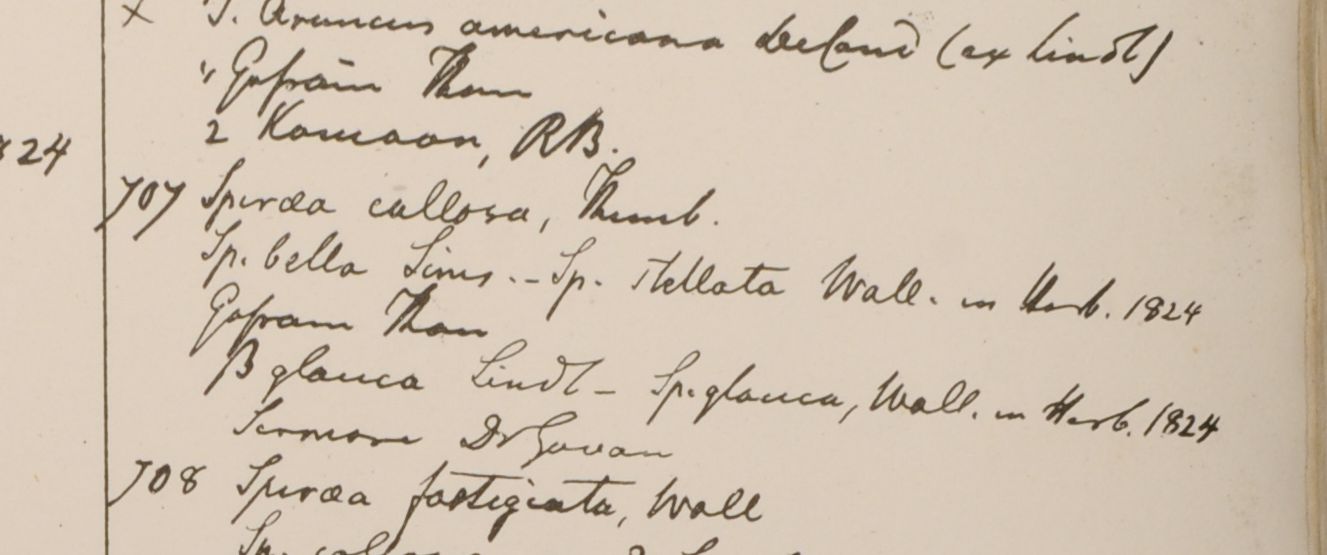 × S. Aruncus americana DeCand (ex Lindl)
" Gosain Than
2 Kamaon, RB.
824
707 Spiræa callosa, Thunb.
Sp. bella Sims. - Sp. stellata Wall. in Herb. 1824
Gosain Than
β glauca Lindl - Sp. glauca, Wall. in Herb. 1824
Sermore Dr Govan
708 Spiræa fastigiata, Wall
Sp.